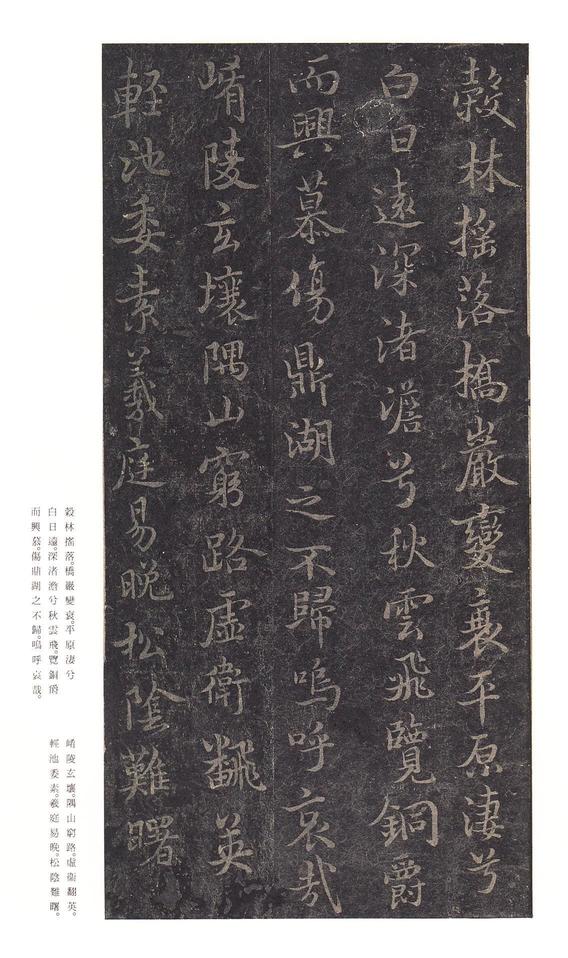 穀林搖落橋巖變衰平原淒兮
白日遠深渚澹兮秋雲飛覽銅爵
而興慕傷鼎湖之不歸嗚呼哀哉
崤陵玄壤隅山窮路虛衛翻英
輊池委素羲庭易晚松陰難曙
穀林搖落。橋巖變衰。平原淒兮
白日遠。深渚澹兮秋雲飛。覽銅爵
而興慕。傷鼎湖之不歸。嗚呼哀哉。
崤陵玄壤。隅山窮路。虛衛翻英。
輊池委素。羲庭易晚。松陰難曙。